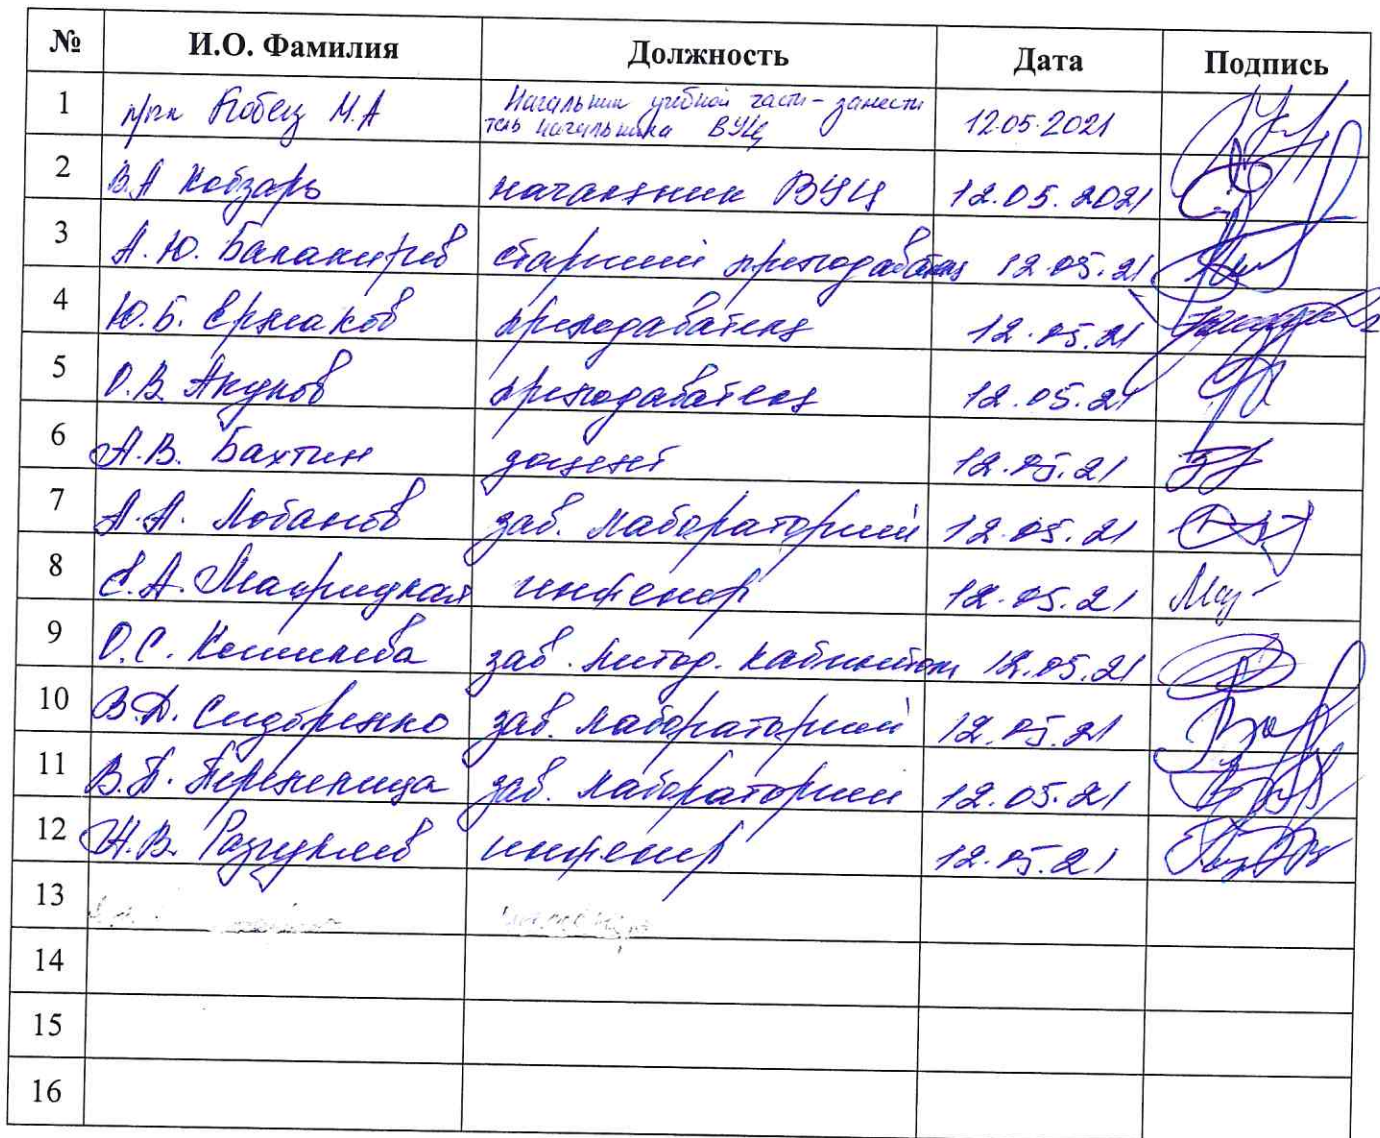 № И.О. Фамилия Должность Дата Подпись
1 Кобец М.А Начальник учебной части - замести 12.05.2021
тель начальника ВУЦ
2 В.А Кобзарь начальник ВУЦ 12.05.2021
3 А.Ю. Балакирев старший преподаватель 12.05.21
4 Ю.Б. Ермаков преподаватель 12.05.21
5 О.В. Акулов преподаватель 12.05.21
6 А.В. Бахтин доцент 12.05.21
7 А.А. Лобанов зав. лабораторией 12.05.21
8 инженер 12.05.21
9 О.С. зав. метод. кабинетом 12.05.21
10 В.Д. Сидоренко зав. лабораторией 12.05.21
11 В.П. зав. лабораторией 12.05.21
12 Разгуляев инженер 12.05.21
13
14
15
16